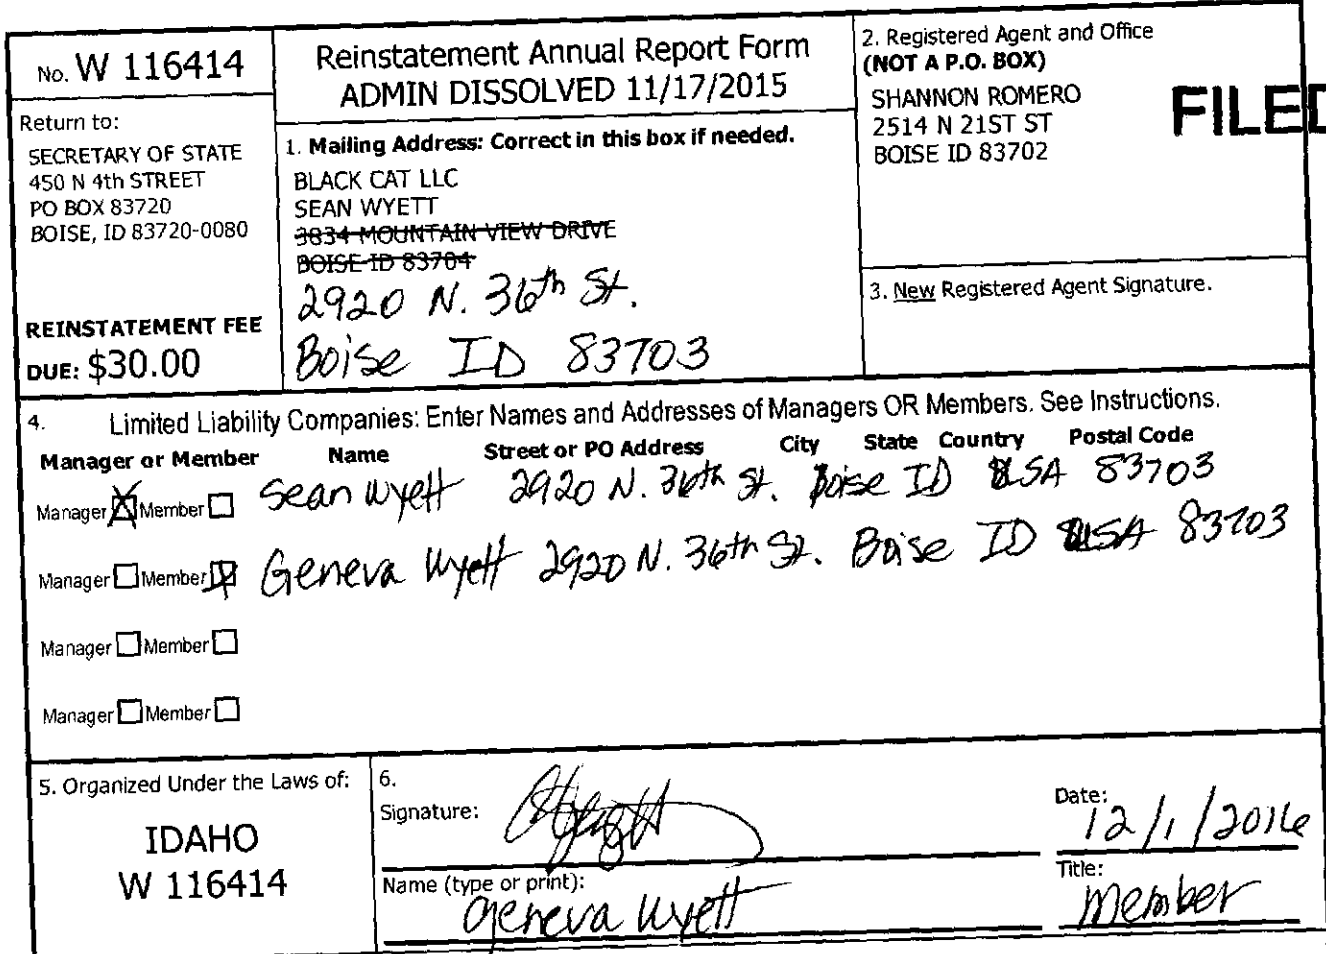 No. W 116414
Return to:
SECRETARY OF STATE
450 N 4th STREET
PO BOX 83720
BOISE, ID 83720-0080
REINSTATEMENT FEE
DUE: $30.00
Reinstatement Annual Report Form
ADMIN DISSOLVED 11/17/2015
1. Mailing Address: Correct in this box if needed.
BLACK CAT LLC
SEAN WYETT
3834 MOUNTAIN VIEW DRIVE
BOISE ID 83704
2920 N. 36th St.
Boise ID 83703
2. Registered Agent and Office
(NOT A P.O. BOX)
SHANNON ROMERO
2514 N 21ST ST
BOISE ID 83702
FILED
3. New Registered Agent Signature.
4. Limited Liability Companies: Enter Names and Addresses of Managers OR Members. See Instructions.
Manager or Member Name Street or PO Address City State Country Postal Code
Manager Member Sean Wyett 2920 N. 36th St. Boise ID USA 83703
Manager Member Geneva Wyett 2920 N. 36th St. Boise ID USA 83703
Manager Member
Manager Member
5. Organized Under the Laws of:
IDAHO
W 116414
6.
Signature:
Date: 12/1/2016
Name (type or print):
Geneva Wyett
Title:
Member